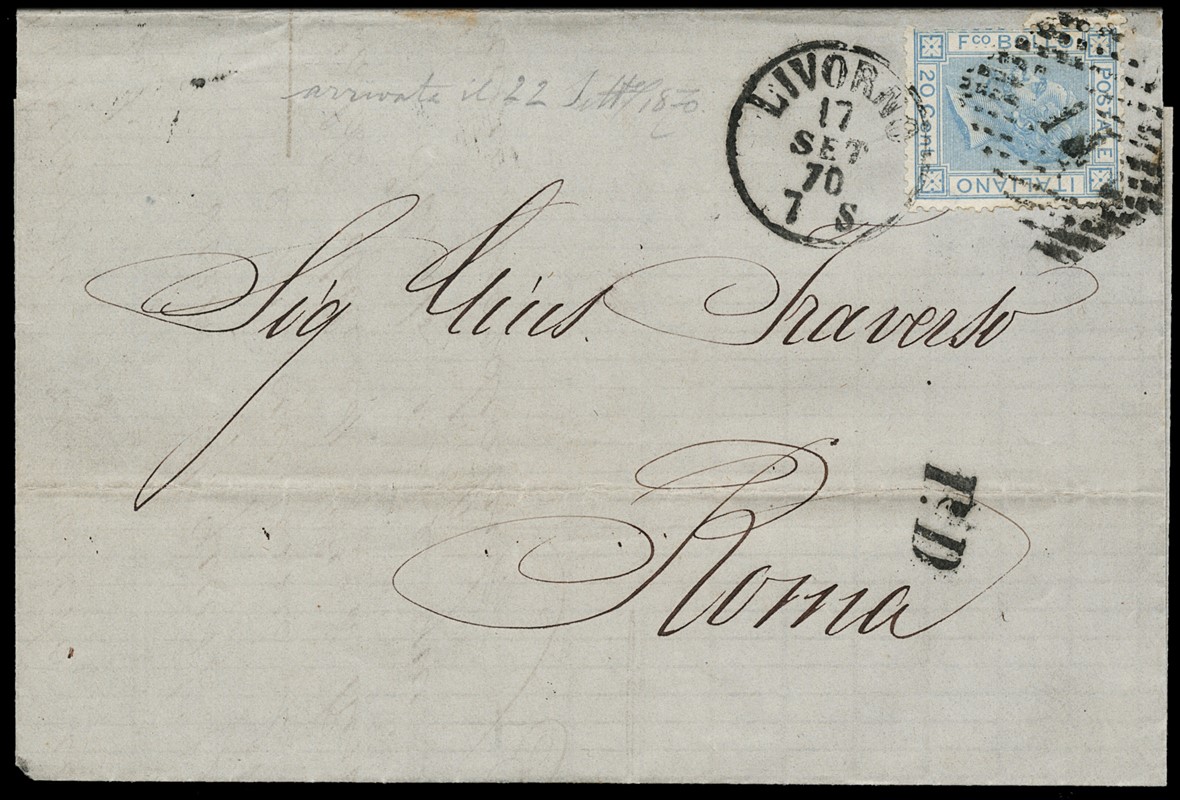 arrivata il 22 Sett. 1870
LIVORNO
17
SET
70
7 S
Fco. BOLLO
POSTALE
ITALIANO
20 Cent.
Sig Traverso
Roma
P.D